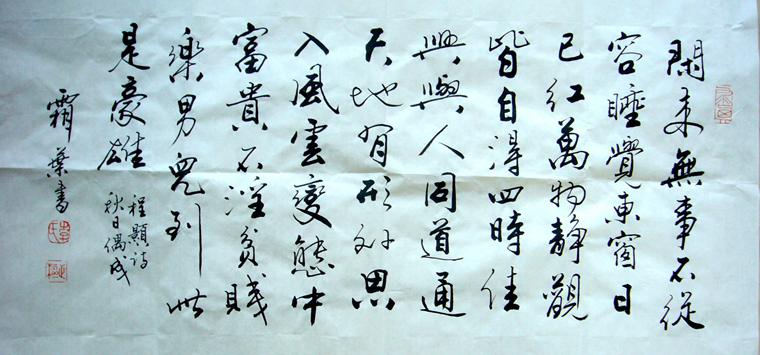 閑来無事不從
容睡覺東窗日
已紅萬物静觀
皆自得四時佳
興與人同道通
天地有形外思
入風雲變態中
富貴不淫貧賤
樂男兒到此
是豪雄
程顥詩
秋日偶成
霜葉書